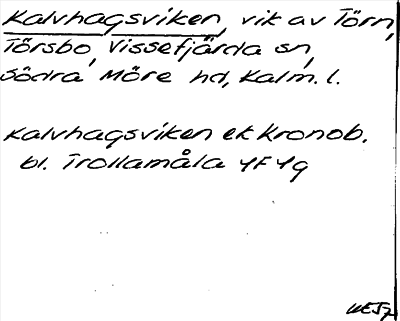 Kalvhagsviken, vik av Törn,
Törsbo, Vissefjärda sn,
Södra Möre hd, Kalm. l.
Kalvhagsviken ek Kronob.
bl. Trollamåla 4F4g